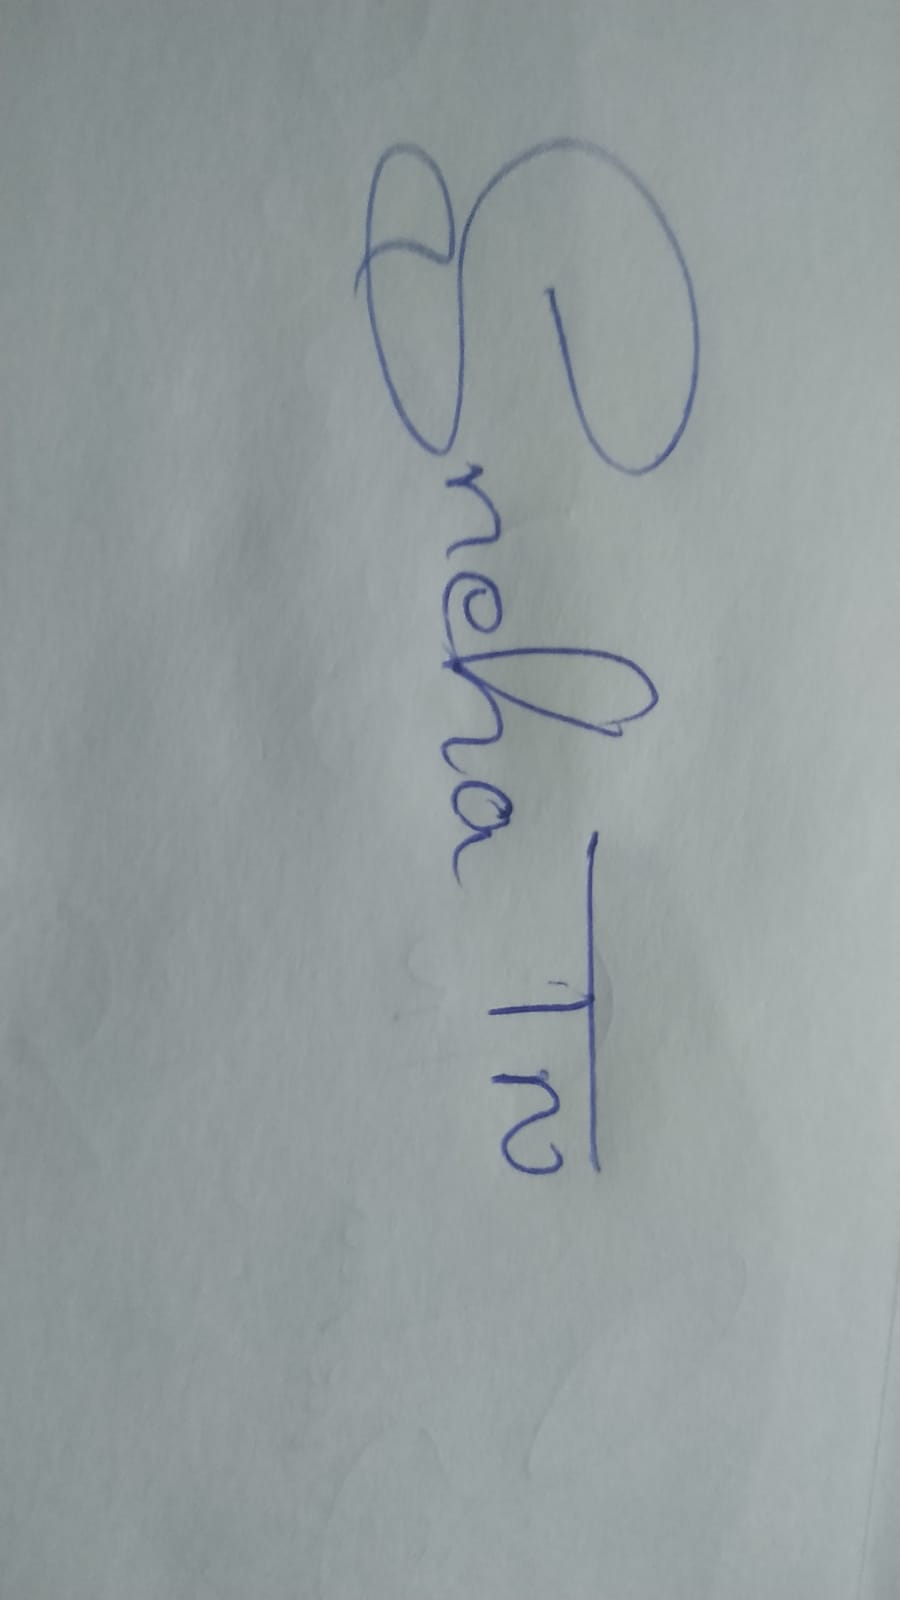 Sneha Tn